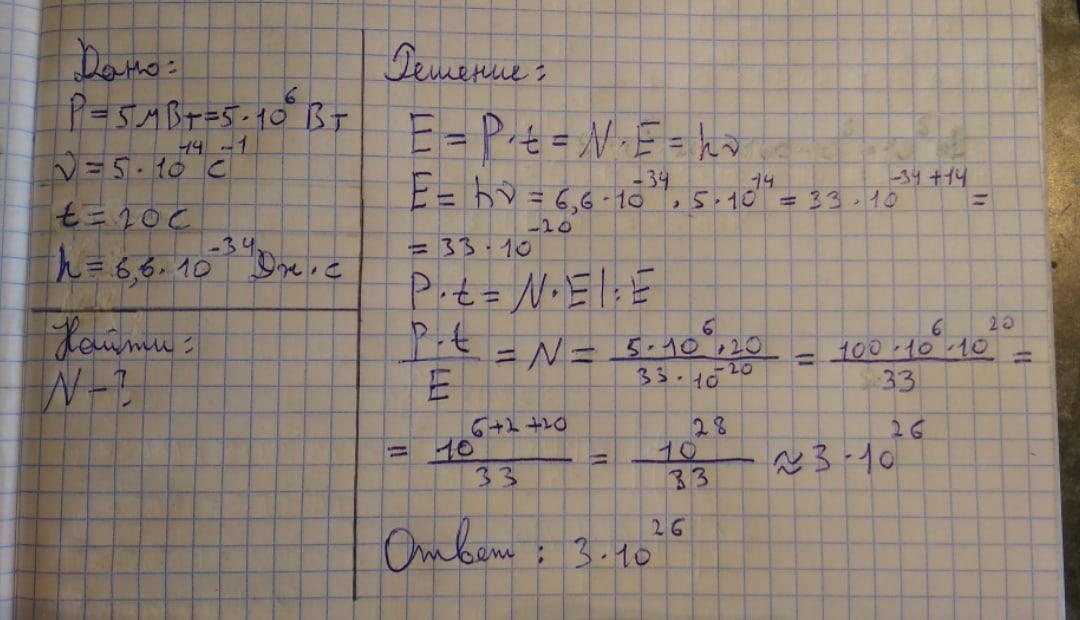 Дано:
P = 5 мВт = 5 · 10^6 Вт
ν = 5 · 10^-14 с^-1
t = 20 с
h = 6,6 · 10^-34 Дж · с
Найти:
N - ?
Решение:
E = P · t = N · E = hν
E = hν = 6,6 · 10^-34 · 5 · 10^14 = 33 · 10^-34+14 =
= 33 · 10^-20
P · t = N · E | : E
P · t / E = N = 5 · 10^6 · 20 / 33 · 10^-20 = 100 · 10^6 · 10^20 / 33 =
= 10^6+2+20 / 33 = 10^28 / 33 ≈ 3 · 10^26
Ответ : 3 · 10^26